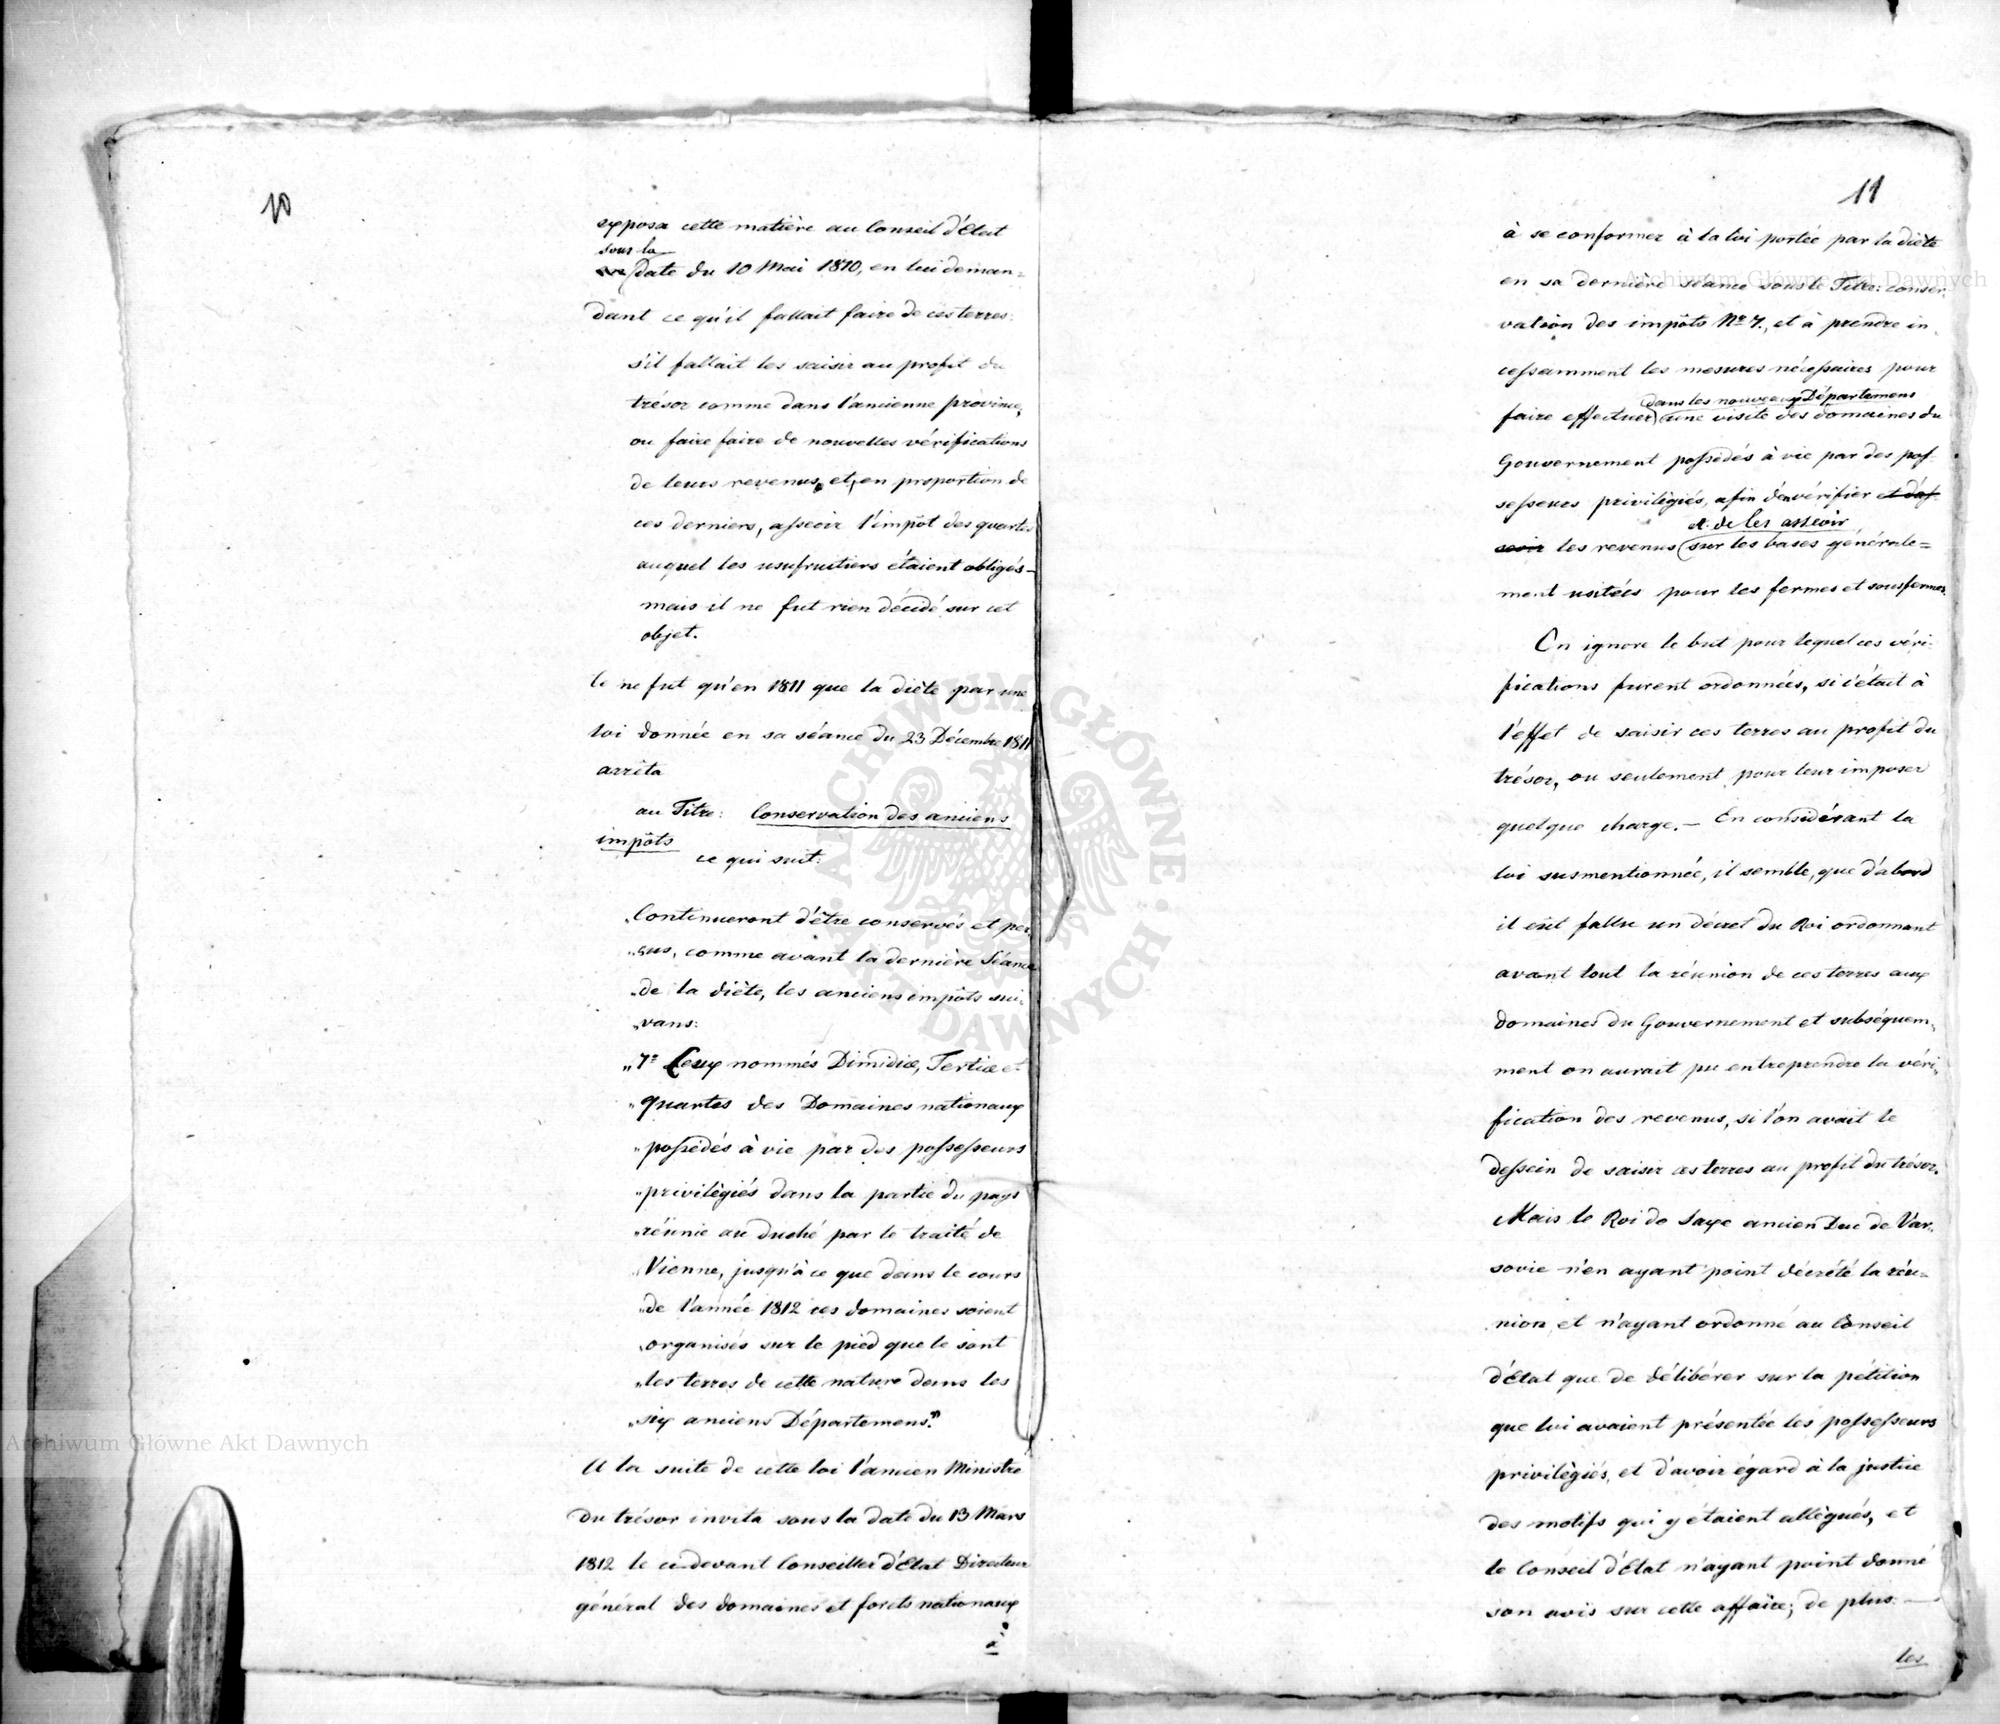 10
exposa cette matière au Conseil d'État
sous la
date du 10 Mai 1810, en lui deman=
dant ce qu'il fallait faire de ces terres:
s'il fallait les saisir au profit du
trésor comme dans l'ancienne province,
ou faire faire de nouvelles vérifications
de leurs revenus, et, en proportion de
ces derniers, asseoir l'impôt des quartes
auquel les usufruitiers étaient obligés —
mais il ne fut rien décidé sur cet
objet.
Ce ne fut qu'en 1811 que la diète par une
loi donnée en sa séance du 23 Décembre 1811
arrêta
au Titre: Conservation des anciens
impôts
ce qui suit:
„Continueront d'être conservés et per„
„çus, comme avant la dernière Séance
„de la diète, les anciens impôts sui„
„vans:
„7º Ceux nommés Dimidiæ, Tertiæ et
„quartes des Domaines nationaux
„possédés à vie par des possesseurs
„privilégiés dans la partie du pays
„réunie au duché par le traité de
„Vienne, jusqu'à ce que dans le cours
„de l'année 1812 ces domaines soient
„organisés sur le pied que le sont
„les terres de cette nature dans les
„six anciens Départemens."
A la suite de cette loi l'ancien Ministre
du trésor invita sous la date du 13 Mars
1812 le ci-devant Conseiller d'État Directeur
général des domaines et forets nationaux
à
11
à se conformer à la loi portée par la diète
en sa dernière séance sous le Titre: conser„
vation des impôts Nº 7., et à prendre in„
cessamment les mesures nécessaires pour
dans les nouveaux Départemens
faire effectuer une visite des domaines du
Gouvernement possédés à vie par des pos„
sesseurs privilégiés, afin d'en vérifier et d'as„
et de les asseoir
seoir les revenus sur les bases générale=
ment usitées pour les fermes et sousfermes.
On ignore le but pour lequel ces véri„
fications furent ordonnées, si c'était à
l'effet de saisir ces terres au profit du
trésor, ou seulement pour leur imposer
quelque charge. — En considérant la
loi susmentionnée, il semble, que d'abord
il eût fallu un décret du Roi ordonnant
avant tout la réunion de ces terres aux
domaines du Gouvernement et subséquem„
ment on aurait pu entreprendre la véri„
fication des revenus, si l'on avait le
dessein de saisir ces terres au profit du trésor.
Mais le Roi de Saxe ancien Duc de Var„
sovie n'en ayant point décrété la réu„
nion et n'ayant ordonné au Conseil
d'État que de délibérer sur la pétition
que lui avaient présentée les possesseurs
privilégiés, et d'avoir égard à la justice
des motifs qui y étaient allégués, et
le Conseil d'État n'ayant point donné
son avis sur cette affaire; de plus —
les
Archiwum Główne Akt Dawnych
Archiwum Główne Akt Dawnych
ARCHIWUM GŁÓWNE AKT DAWNYCH